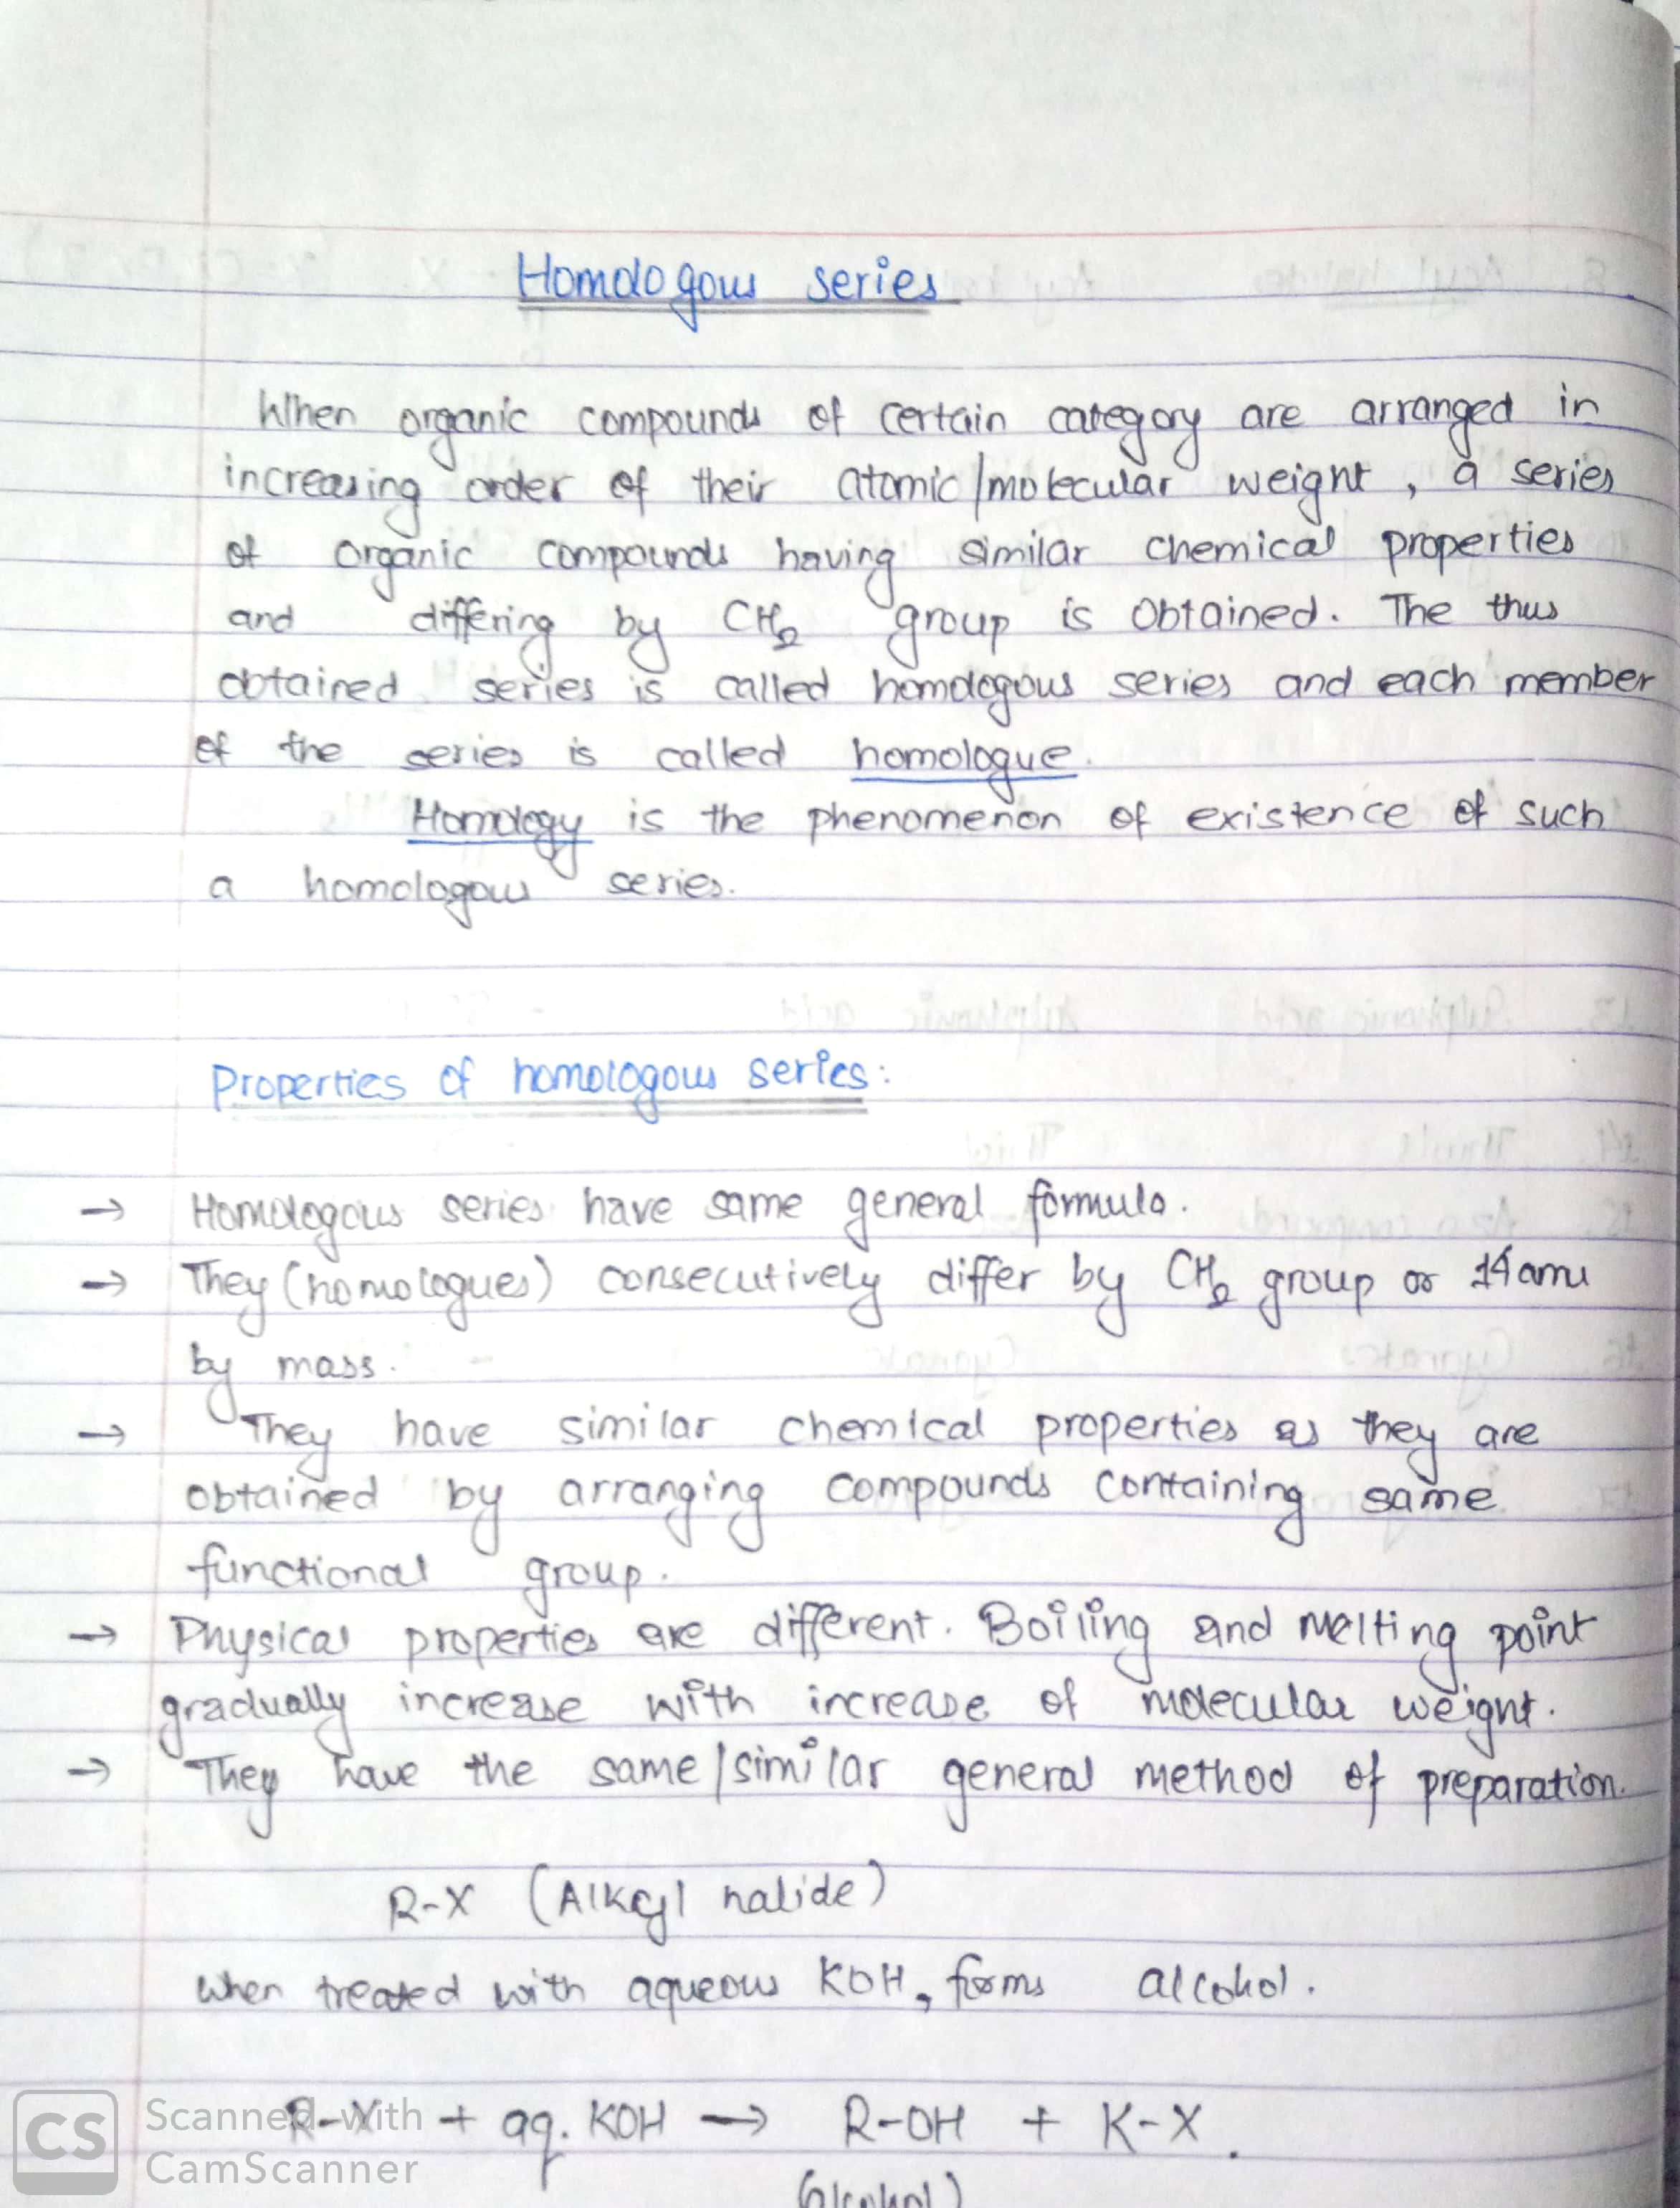 Homologous series
When organic compounds of certain category are arranged in
increasing order of their atomic/molecular weight, a series
of organic compounds having similar chemical properties
and differing by CH₂ group is obtained. The thus
obtained series is called homologous series and each member
of the series is called homologue.
Homology is the phenomenon of existence of such
a homologous series.
Properties of homologous series:
→ Homologous series have same general formula.
→ They (homologues) consecutively differ by CH₂ group or 14amu
by mass.
→ They have similar chemical properties as they are
obtained by arranging compounds containing same
functional group.
→ Physical properties are different. Boiling and melting point
gradually increase with increase of molecular weight.
→ They have the same/similar general method of preparation.
R-X (Alkyl halide)
when treated with aqueous KOH, forms alcohol.
R-X + aq. KOH → R-OH + K-X.
(Alcohol)
Scanned with
CS
CamScanner